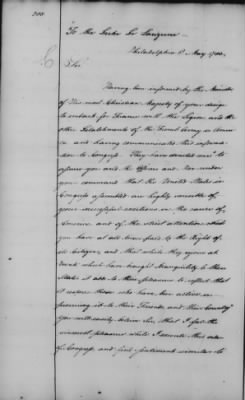 To the Duke de Lauzun
Philadelphia 1st May 1783
Sir
Having been informed by the Minister
of His most Christian Majesty of your design
to embark for France with the Legion and the
other Detachments of the French Army in Ameri
ca and having communicated this informa
tion to Congress. They have directed me to
assure you and the Officers and Men under
your command that the United States in
Congress assembled are highly sensible of
your successful exertions in the cause of
America and of the strict attention which
you have at all times paid to the Rights of
its Citizens, and that while they rejoice at
events which have brought tranquility to these
States it adds to their pleasure to reflect that
it restores those who have been active in
procuring it to their Friends and their Country
You will easily believe Sir, that I feel the
sincerest pleasure while I execute this order
of Congress and find sentiments similar to